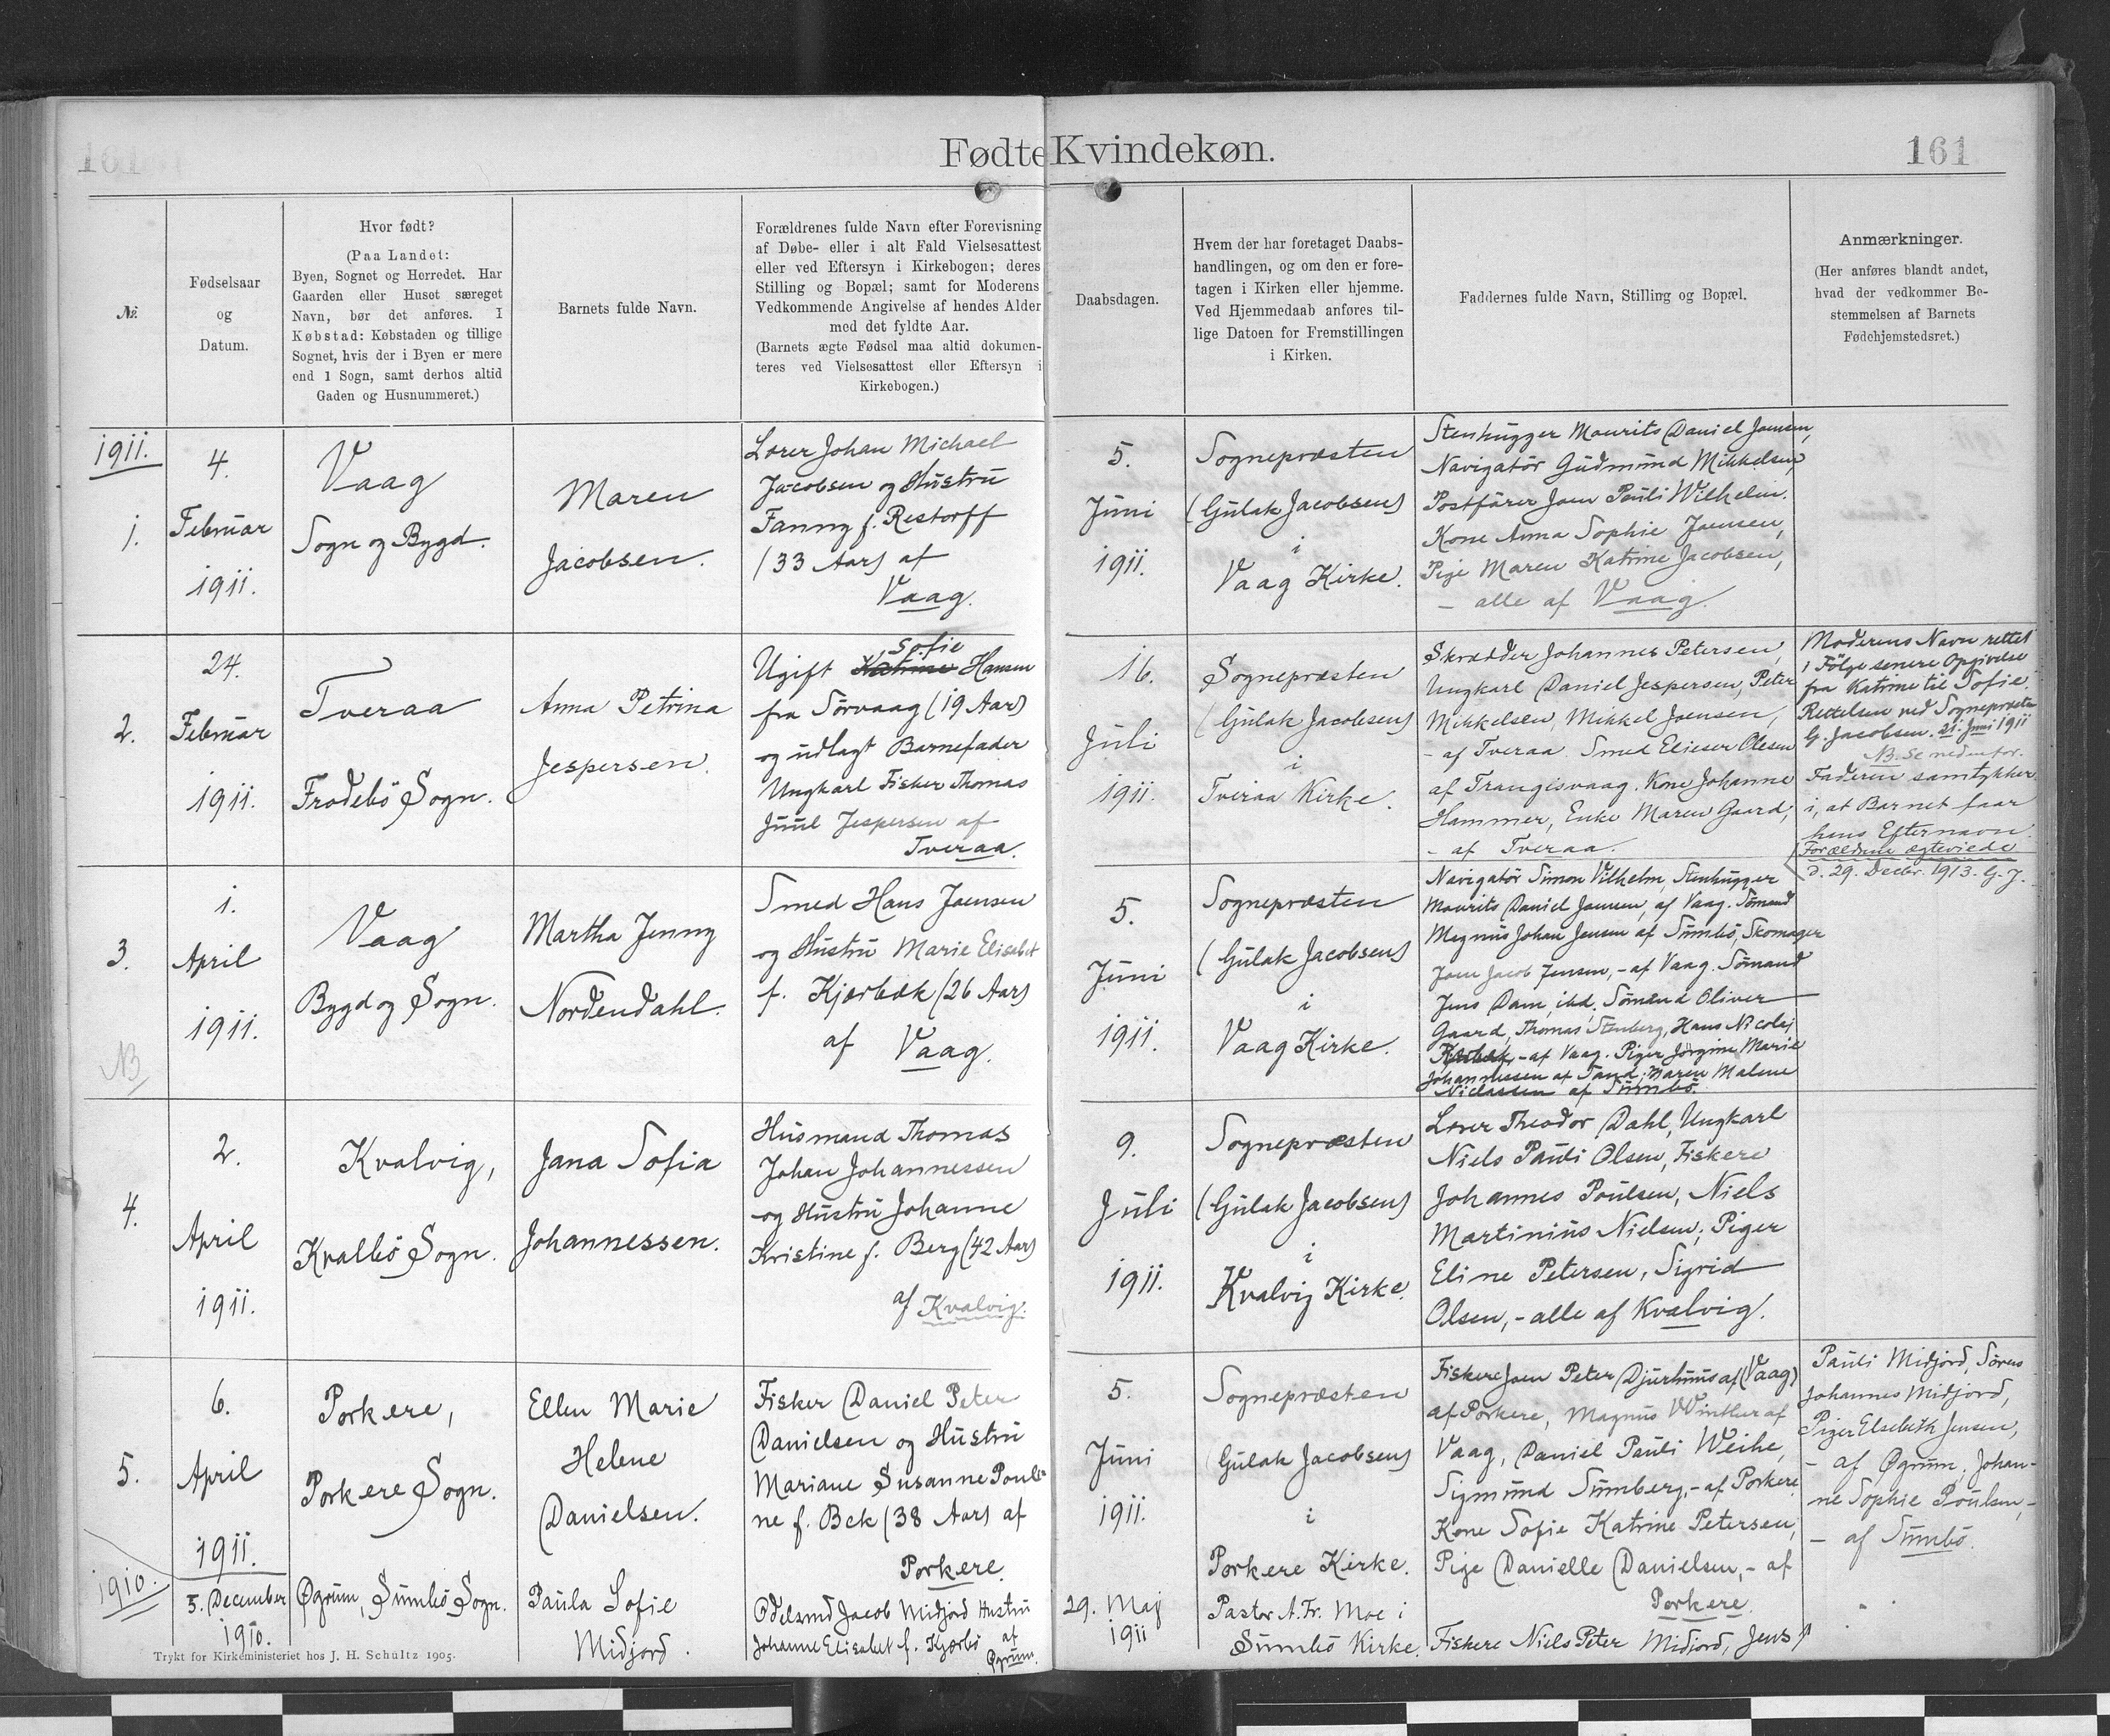 Fødte Kvindekøn.
161
№
Fødselsaar
og
Datum.
Hvor født?
(Paa Landet:
Byen, Sognet og Herredet. Har
Gaarden eller Huset særeget
Navn, bør det anføres. I
Købstad: Købstaden og tillige
Sognet, hvis der i Byen er mere
end 1 Sogn, samt derhos altid
Gaden og Husnummeret.)
Barnets fulde Navn.
Forældrenes fulde Navn efter Forevisning
af Døbe- eller i alt Fald Vielsesattest
eller ved Eftersyn i Kirkebogen; deres
Stilling og Bopæl; samt for Moderens
Vedkommende Angivelse af hendes Alder
med det fyldte Aar.
(Barnets ægte Fødsel maa altid dokumen-
teres ved Vielsesattest eller Eftersyn i
Kirkebogen.)
Daabsdagen.
Hvem der har foretaget Daabs-
handlingen, og om den er fore-
tagen i Kirken eller hjemme.
Ved Hjemmedaab anføres til-
lige Datoen for Fremstillingen
i Kirken.
Faddernes fulde Navn, Stilling og Bopæl.
Anmærkninger.
(Her anføres blandt andet,
hvad der vedkommer Be-
stemmelsen af Barnets
Fødehjemstedsret.)
1911.
1.
4.
Februar
1911.
Vaag
Sogn og Bygd.
Maren
Jacobsen.
Lærer Johan Michael
Jacobsen og Hustru
Fanny f. Restorff
(33 Aar) af
Vaag.
5.
Juni
1911.
Sognepræsten
(Gulak Jacobsen)
i
Vaag Kirke.
Stenhugger Mourits Daniel Joensen,
Navigatör Gudmund Mikkelsen,
Postfører Joen Pauli Wilhelm.
Kone Anna Sophie Joensen,
Pige Maren Katrine Jacobsen,
- alle af Vaag.
2.
24.
Februar
1911.
Tveraa
Frodebö Sogn.
Anna Petrina
Jespersen.
Sofie
Ugift Katrine Hansen
fra Sörvaag (19 Aar)
og udlagt Barnefader
Ungkarl Fisker Thomas
Juul Jespersen af
Tveraa.
16.
Juli
1911.
Sognepræsten
(Gulak Jacobsen)
i
Tveraa Kirke.
Skrædder Johannes Petersen,
Ungkarl Daniel Jespersen, Peter
Mikkelsen, Mikkel Joensen,
- af Tveraa. Smed Elieser Olesen
af Trangisvaag. Kone Johanne
Hammer, Enke Maren Gaard,
- af Tveraa.
Moderens Navn rettet
i Fölge senere Opgivelse
fra Katrine til Sofie.
Rettelsen ved Sognepræsten
G. Jacobsen. 21. Juni 1911
NB. Se nedenfor.
Faderen samtykker
i, at Barnet faar
hans Efternavn.
Forældrene ægteviede
d. 29. Decbr. 1913. G. J.
3.
NB
1.
April
1911.
Vaag
Bygd og Sogn.
Martha Jenny
Nordendahl.
Smed Hans Joensen
og Hustru Marie Elisabet
f. Kjærbæk (26 Aar)
af Vaag.
5.
Juni
1911.
Sognepræsten
(Gulak Jacobsen)
i
Vaag Kirke.
Navigatör Simon Vilhelm, Stenhugger
Mourits Daniel Joensen, af Vaag. Sömand
Magnus Johan Jensen af Sumbö, Skomager
Joen Jacob Jensen, - af Vaag. Sömand
Jens Dam, ibd, Sömænd Oliver
Gaard, Thomas Stenberg, Hans Nicolaj
Kærbæk, - af Vaag. Piger Jörgine Marie
Johannessen af Sand, Maren Malene
Niclassen af Sumbö.
4.
2.
April
1911.
Kvalvig,
Kvalbö Sogn.
Jana Sofia
Johannessen.
Husmand Thomas
Johan Johannessen
og Hustru Johanne
Kristine f. Berg (42 Aar)
af Kvalvig.
9.
Juli
1911.
Sognepræsten
(Gulak Jacobsen)
i
Kvalvig Kirke.
Lærer Theodor Dahl, Ungkarl
Niels Pauli Olsen, Fiskere
Johannes Poulsen, Niels
Martinius Nielsen; Piger
Eline Petersen, Sigrid
Olsen, - alle af Kvalvig.
5.
6.
April
1911.
Porkere,
Porkere Sogn.
Ellen Marie
Helene
Danielsen.
Fisker Daniel Peter
Danielsen og Hustru
Mariane Susanne Pouli-
ne f. Bek (38 Aar) af
Porkere.
5.
Juni
1911.
Sognepræsten
(Gulak Jacobsen)
i
Porkere Kirke.
Fiskere Joen Peter Djurhuus af (Vaag)
af Porkere, Magnus Winther af
Vaag, Daniel Pauli Weihe,
Sigmund Sumberg, - af Porkere
Kone Sofie Katrine Petersen,
Pige Danielle Danielsen, - af
Porkere.
Pauli Midjord, Sörens
Johannes Midjord,
Piger Elsebeth Jensen,
- af Øgrum, Johan-
ne Sophie Poulsen, -
- af Sumbö.
1910.
5. December
1910.
Øgrum, Sumbö Sogn.
Paula Sofie
Midjord.
Odelsmd Jacob Midjord Hustru
Johanne Elisabet f. Kjærbo af
Øgrum.
29. Maj
1911
Pastor A. Fr. Moe i
Sumbö Kirke.
Fiskere Niels Peter Midjord, Jens
Trykt for Kirkeministeriet hos J. H. Schultz 1905.